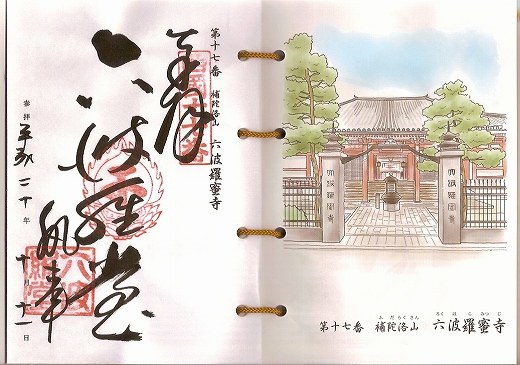 奉拝
第十七番 補陀洛山 六波羅蜜寺
六波羅堂
参拝 平成二十年十月十一日
第十七番 補陀洛山 六波羅蜜寺
ふだらくさん
ろくはらみつじ
六波羅蜜寺
六波羅蜜寺